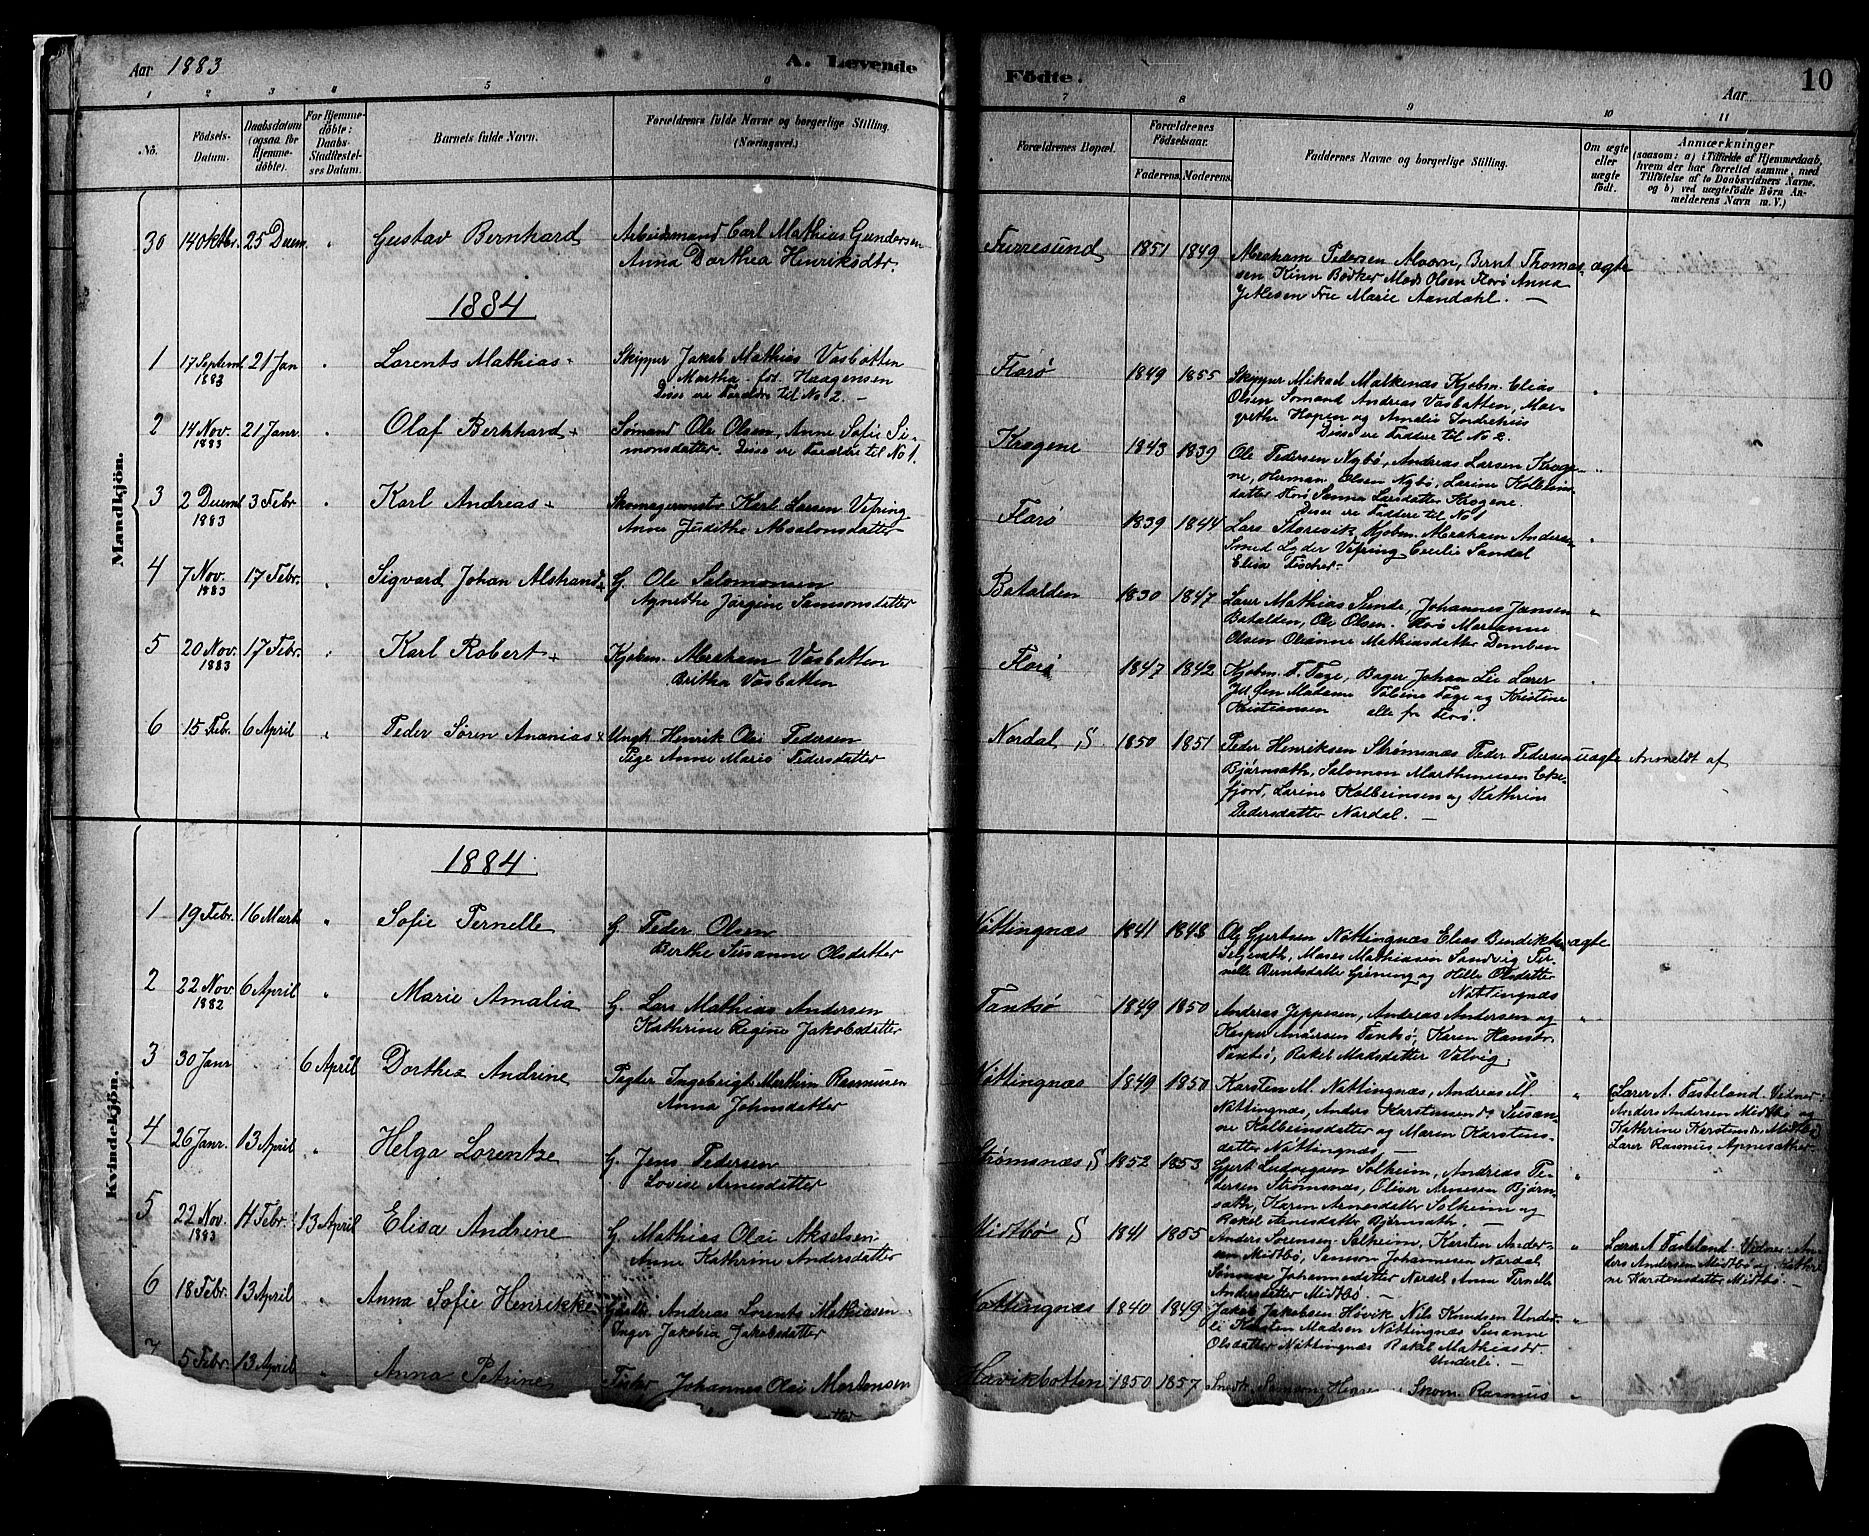 Aar 1883 A. Levende
Födte. Aar 10
1 2 3 4 5 6
7 8 9 10 11
No.
Födsels-
Datum.
Daabsdatum
(ogsaa for
Hjemme-
döbte).
For Hjemme-
döbte:
Daabs-
Stadfæstel-
ses Datum.
Barnets fulde Navn.
Forældrenes fulde Navne og borgerlige Stilling.
(Næringsvei.)
Forældrenes Bopæl.
Forældrenes
Födselsaar.
Faderens. Moderens.
Faddernes Navne og borgerlige Stilling.
Om ægte
eller
uægte
födt.
Anmærkninger
(saasom: a) i Tilfælde af Hjemmedaab,
hvem der har forrettet samme, med
Tilföielse af to Daabsvidners Navne,
og b) ved uægtefödte Börn An-
melderens Navn m. V.)
Mandkjön.
30 14 Oktbr. 25 Decem. " Gustav Bernhard
Arbeidsmand Carl Mathias Gundersen
Anna Dorthea Henriksdtr.
Furresund 1851 1849
Abraham Pedersen Alvorn, Bernt Thomas-
sen Kinn Bødker Mads Olsen Florö Anna
Marie Aandahl. —
ægte
1884
1 17 Septemb. 1883 21 Jan " Lorents Mathias
Skipper Jakob Mathias Vasbotten
Martha f. Haagensen
Disse ere Forældre til No 2. —
Florø 1849 1855
Skipper Mikael Kjøbm. Elias
Olsen Sømand Andreas Vasbotten, Mar-
grethe Hopen og Amalie Indrehus
Disse ere Faddere til No 2.
"
2 14 Nov. 1883 21 Janr. " Olaf Bernhard
Sømand Ole Olsen, Anne Sofie Si-
monsdatter. Disse ere Forældre til No 1.
Krogene 1843 1839
Ole Pedersen Nybö, Andreas Larsen Kroge-
ne, Herman Olsen Nybö, Larine Kolbeins-
datter Florö Sanna Larsdatter Krogene.
Disse ere Faddere til No 1
"
3 2 Decemb 1883 3 Febr " Karl Andreas
Skomagermester Karl Larsen Vefring
Anne Judithe Absalonsdatter
Florø 1839 1844
Lars Storevik Kjøbm. Abraham Andersen
Smed Lyder Vefring Cecilie Sandal
Elisa Fischer.
"
4 7 Nov. 1883 17 Febr. " Sigvard Johan Alstrand
G. Ole Salomonsen
Agnethe Jørgine Samsonsdatter
Batalden 1830 1847
Lærer Mathias Sunde, Johannes Jansen
Batalden, Ole Olsen Florö Marianne
Olsen Oleanne Mathiasdatter Domben
"
5 20 Nov. 1883 17 Febr. " Karl Robert
Kjøbm. Abraham Vasbotten
Britha Vasbotten
Florø 1847 1842
Kjøbm. T. Tage, Bager Johan Lie Lærer
Madame Tage og Kristine
Kristiansen alle fr Florø.
"
6 15 Febr. 6 April " Peder Søren Ananias
Ungk. Henrik Olai Pedersen
Pige Anne Marie Pedersdatter
Nordal, S. 1850 1851
Peder Henriksen Strømsnæs Peder Pedersen
Bjørnsæth, Salomon Marthinusen Eke-
fjord, Larine Kolbeinsen og Kathrine
Pedersdatter Nordal. —
uægte Anmeldt af
Kvindekjön.
1884
1 19 Febr. 16 Marts " Sofie Pernelle
G. Peder Olsen
Berthe Susanne Olsdatter
Nøttingnæs 1841 1848
Ole Gjertsen Nøttingnæs Elias Bendiktsen
Moses Mathiasen Sandvig Per-
nelle Berntsdatter Grøning og Helle Olsdatter
Nøttingnæs
ægte
2 22 Nov 1882 6 April " Marie Amalia
G. Lars Mathias Andersen
Kathrine Regine Jakobsdatter
Tansø 1849 1850
Andreas Jeppesen, Andreas Andersen og
Kasper Andersen Tansø, Karen Hansdr.
Tansø, Rakel Madsdatter Valvig.
"
3 30 Janr 6 April Dorthea Andrine
Pagter Ingebrigt Marthin Rasmusen
Anna Johnsdatter
Nøttingnæs 1849 1850
Karsten M. Nøttingnæs, Andreas M.
Nøttingnæs, Anders Karstensen Susan-
ne Kolbeinsdatter og Maren Karstens-
datter Nøttingnæs —
"
Lærer A. Fasteland. Vidner:
Anders Andersen Midtbö og
Kathrine Karstensdr. Midtbö
Lærer Rasmus
4 26 Janr. 13 April " Helga Lorentze
G. Jens Pedersen
Lovise Arnesdatter
Strømsnæs, S 1852 1853
Gjert Ludvigsen Solheim, Andreas Pe-
dersen Strømsnæs, Oliver Arnesen Bjørn-
sæth, Karen Arnesdatter Solheim og
Rakel Arnesdatter Bjørnsæth. —
"
5 22 Nov. 1883 14 Febr. 13 April Elisa Andrine
G. Mathias Olai Akselsen
Anne Kathrine Andersdatter
Midtbø, S 1841 1855
Anders Sørensen Solheim, Karsten Ander-
sen Midtbö, Samson Johannesen Nordal
Johannesdatter Nordal Anne Pernelle
Andersdatter Midtbö. —
"
Lærer A. Fasteland. Vidner: An-
ders Andersen Midtbö og Kathri-
ne Karstensdatter Midtbö. —
6 18 Febr. 13 April " Anna Sofie Henrikke
Andreas Lorents Mathiasen
Inger Jakobia Jakobsdatter
Nøttingnæs 1840 1849
Jakob Jakobsen Høvik Nils Knudsen Under-
li Karsten Madsen Nøttingnæs Susanne
Olsdatter Nøttingnæs Rakel Mathiasdr.
Underli. —
"
7 5 Febr. 13 April " Anna Petrine
Johannes Olai Mortensen
Høvikbotten 1850 1857
Samson Rasmus
"